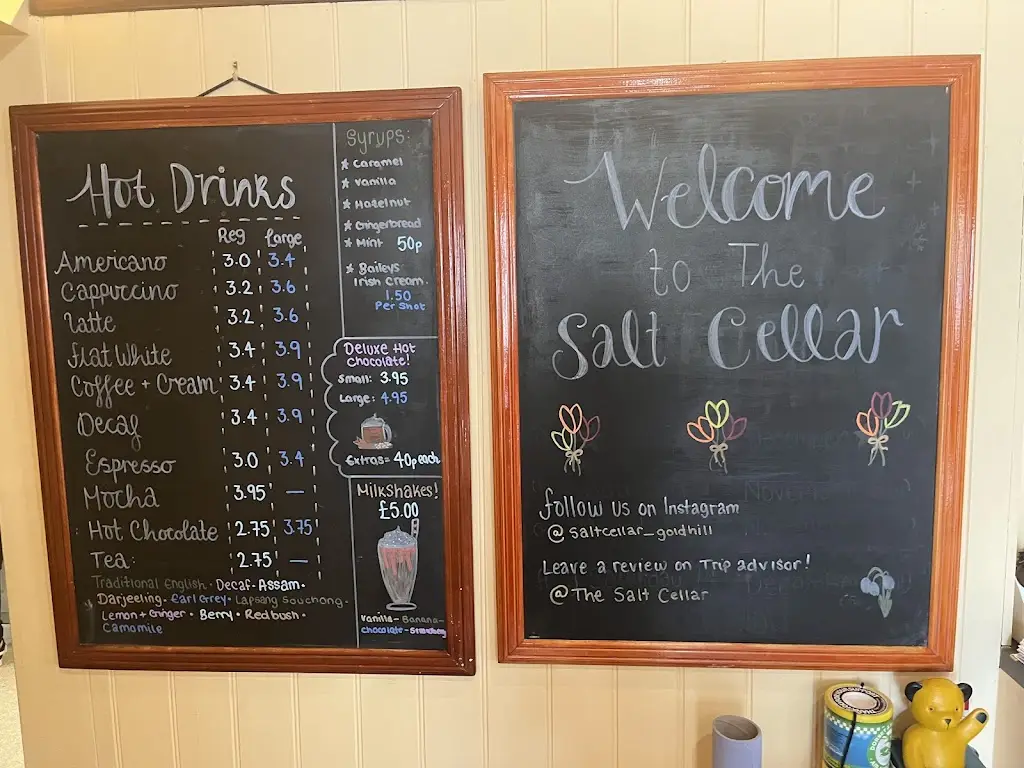 Hot Drinks
Reg Large
Americano 3.0 3.4
Cappuccino 3.2 3.6
Latte 3.2 3.6
Flat White 3.4 3.9
Coffee + Cream 3.4 3.9
Decaf 3.4 3.9
Espresso 3.0 3.4
Mocha 3.95 —
Hot Chocolate 2.75 3.75
Tea: 2.75 —
Traditional English · Decaf · Assam ·
Darjeeling · Earl Grey · Lapsang Souchong ·
Lemon + Ginger · Berry · Redbush ·
Camomile
Syrups:
* Caramel
* Vanilla
* Hazelnut
* Gingerbread
* Mint 50p
* Baileys
Irish Cream.
1.50
Per Shot
Deluxe Hot
Chocolate!
Small: 3.95
Large: 4.95
Extras = 40p each
Milkshakes!
£5.00
Vanilla - Banana -
Chocolate - Strawberry
Welcome
to The
Salt Cellar
follow us on Instagram
@saltcellar_goldhill
Leave a review on Trip advisor!
@The Salt Cellar